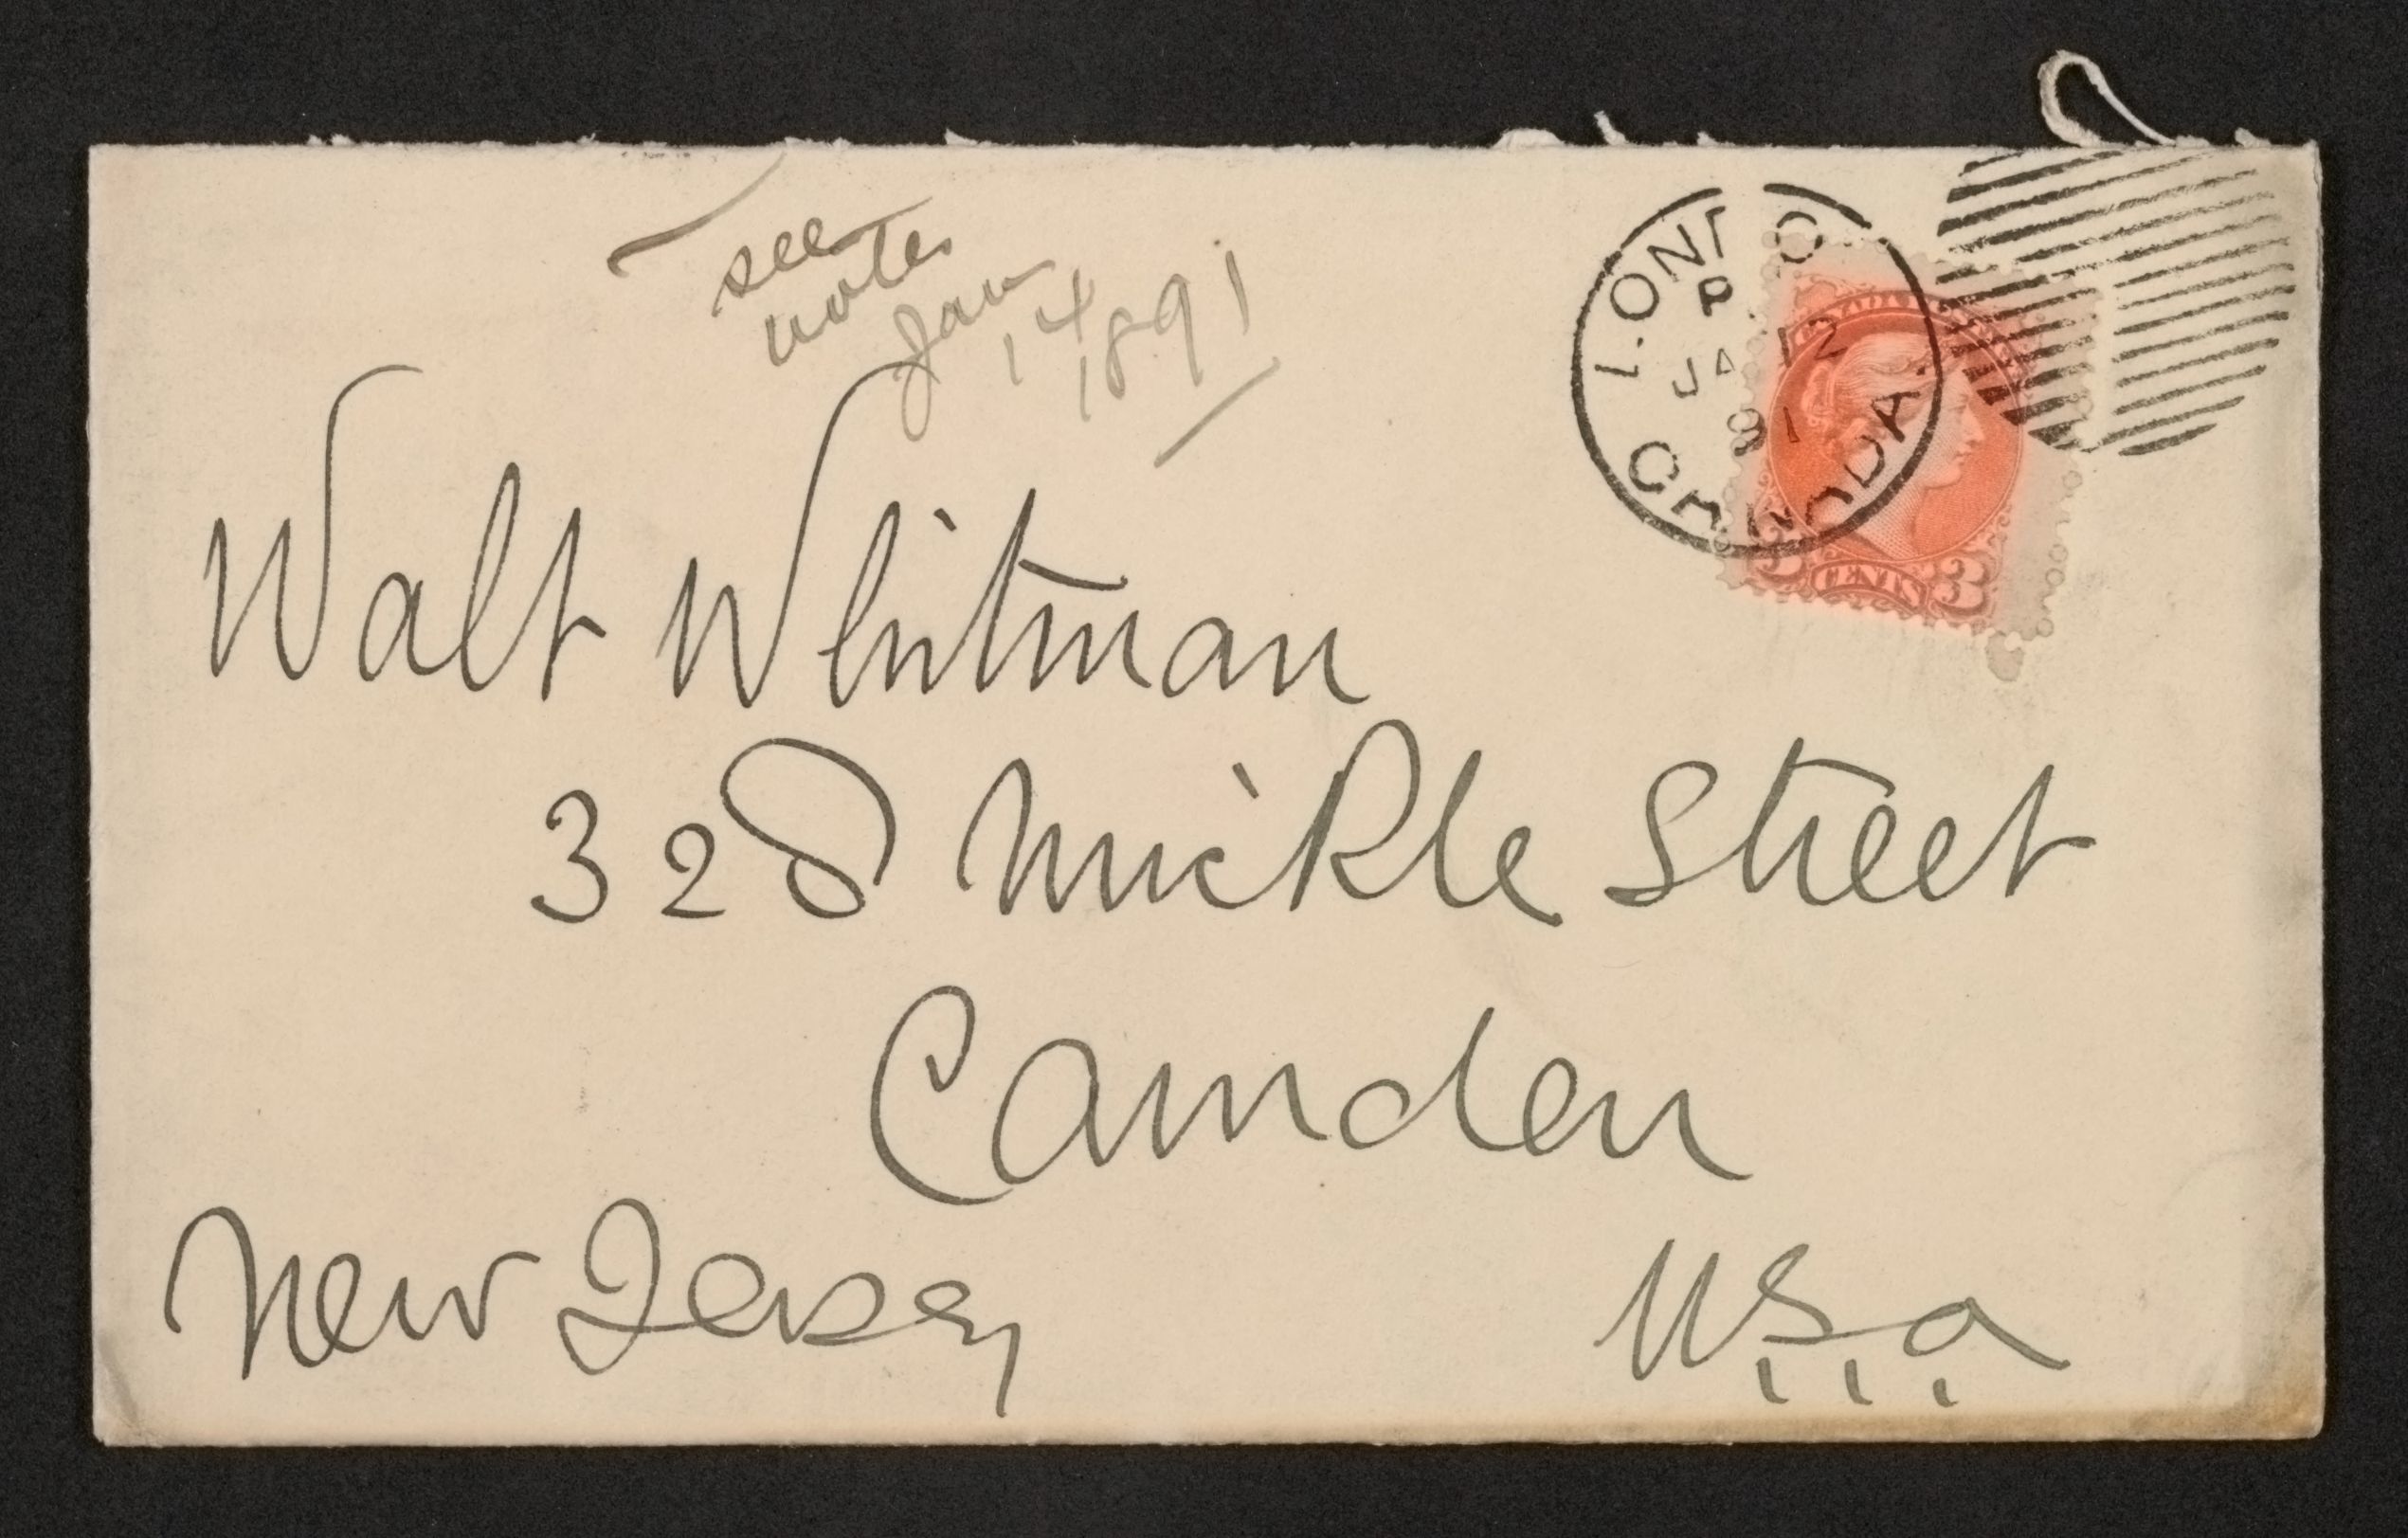 see
notes
Jan
14
1891
LOND O
P
JA 12
91
CANADA.
3 CENTS 3
Walt Whitman
328 Mickle Street
Camden
New Jersey
U.S.a